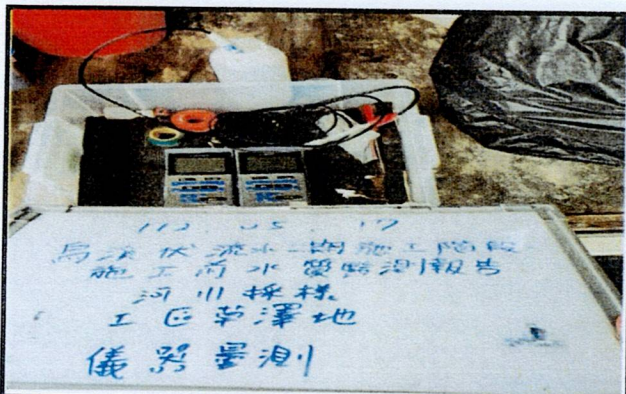 112.05.17
烏溪伏流水二期施工階段
施工前水質監測報告
河川採樣
工區草澤地
儀器量測